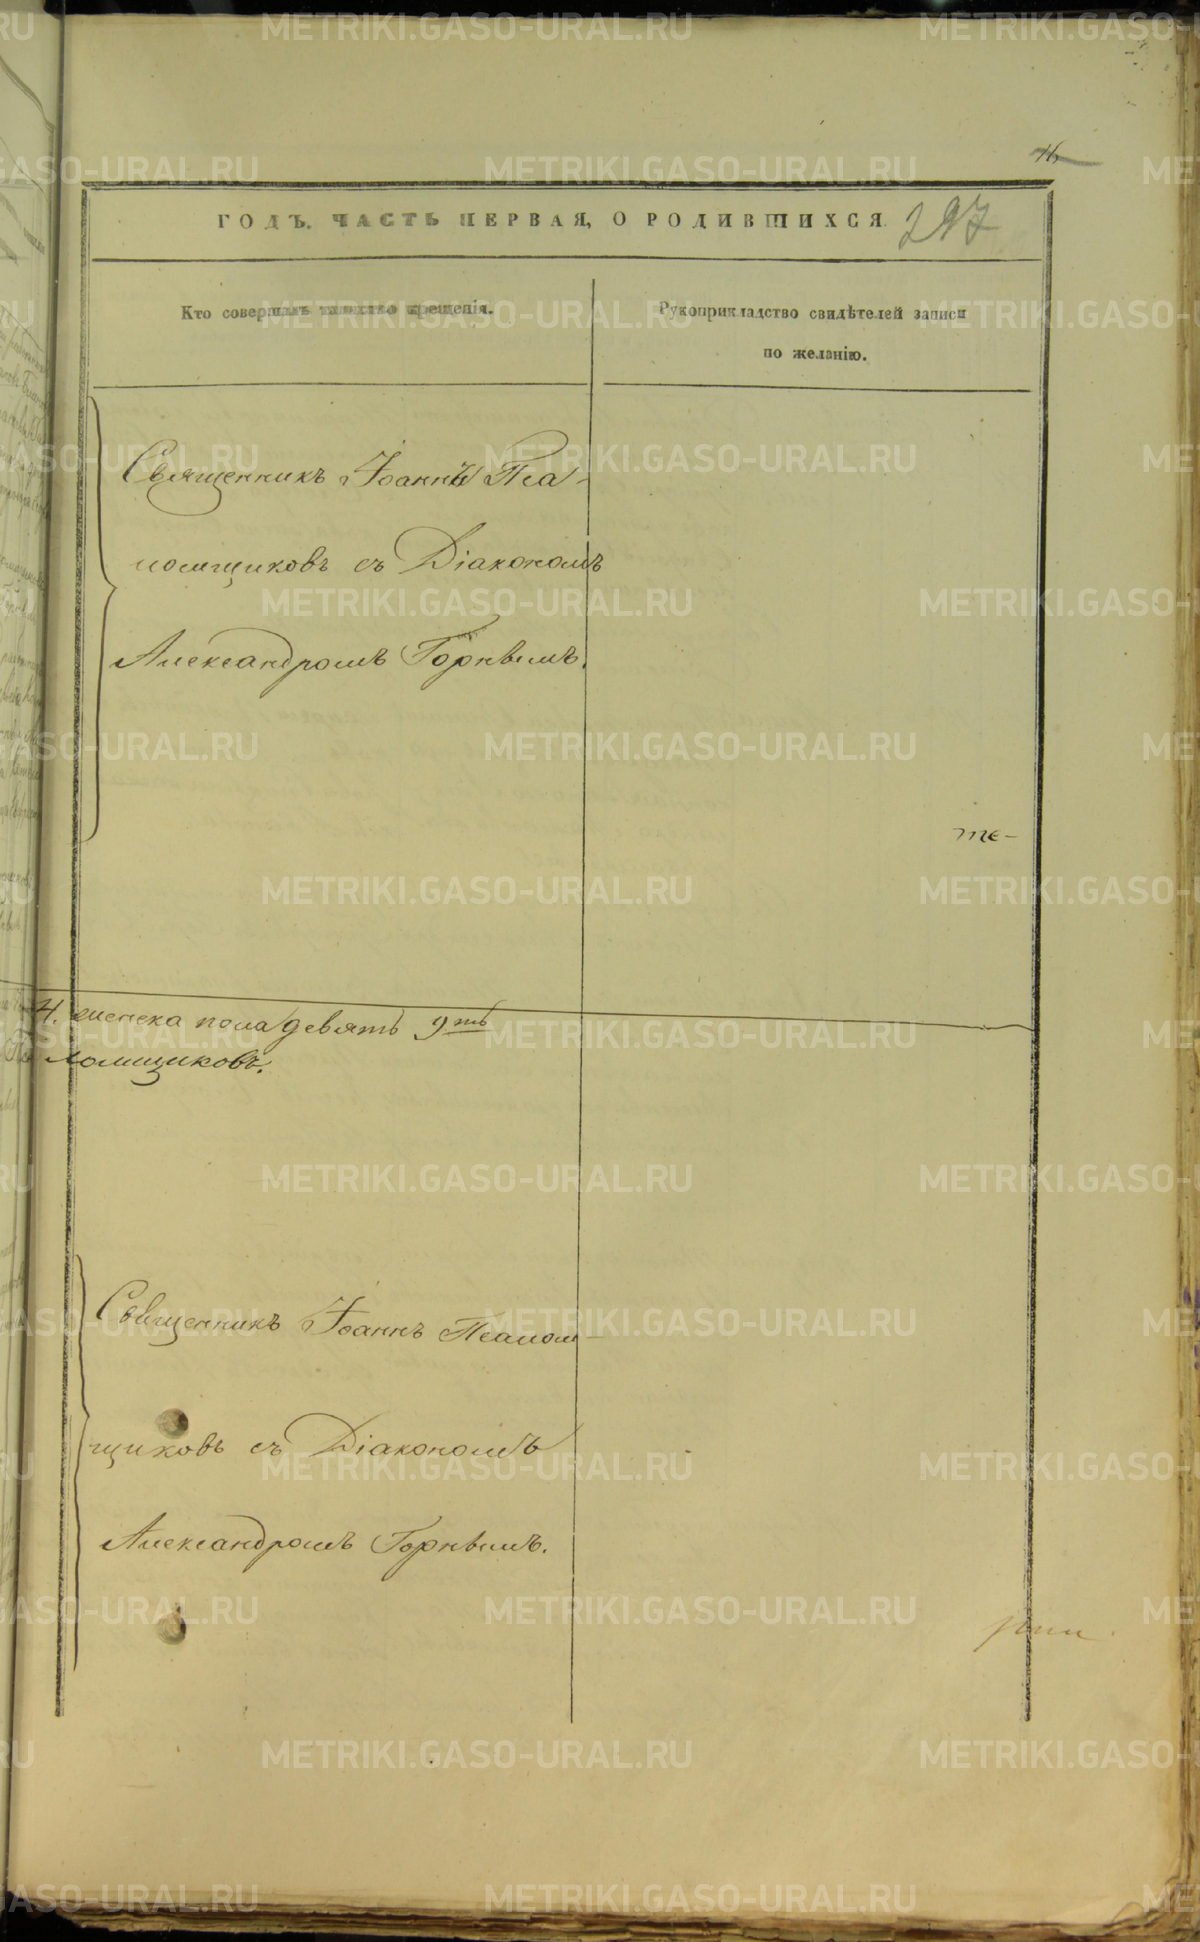 16
ГОДЪ. ЧАСТЬ ПЕРВАЯ, О РОДИВШИХСЯ. 297
Кто совершалъ таинство крещенія.
Рукоприкладство свидѣтелей записи
по желанію.
Священникъ Іоаннъ Пса-
ломщиковъ съ Діакономъ
Александромъ Горнымъ.
те-
4. женска пола девять 9ть
ломщиковъ.
Священникъ Іоаннъ Псалом-
щиковъ съ Діакономъ
Александромъ Горнымъ.
METRIKI.GASO-URAL.RU